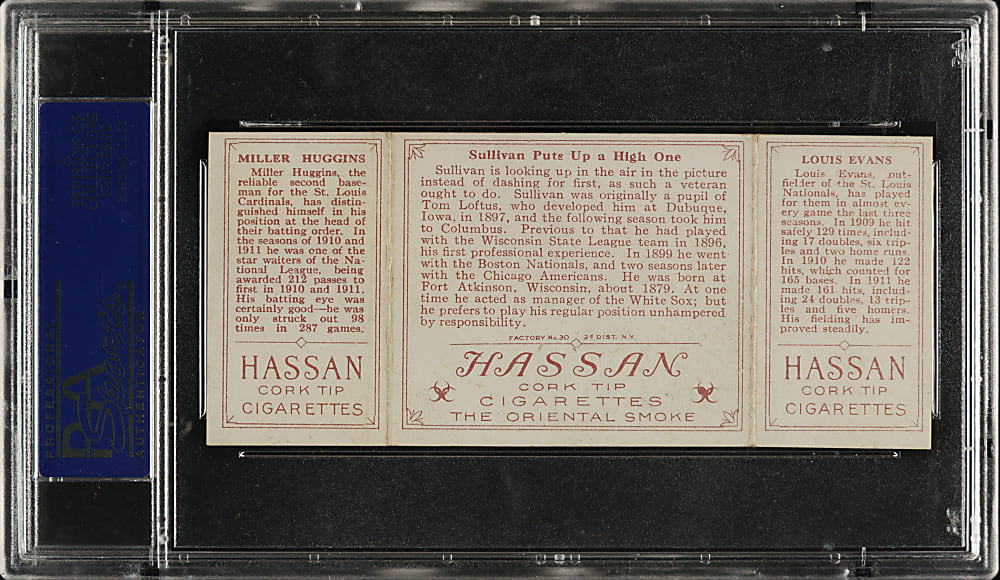 MILLER HUGGINS
Miller Huggins, the
reliable second base-
man for the St. Louis
Cardinals, has distin-
guished himself in his
position at the head of
their batting order. In
the seasons of 1910 and
1911 he was one of the
star waiters of the Na-
tional League, being
awarded 212 passes to
first in 1910 and 1911.
His batting eye was
certainly good—he was
only struck out 98
times in 287 games.
HASSAN
CORK TIP
CIGARETTES
Sullivan Puts Up a High One
Sullivan is looking up in the air in the picture
instead of dashing for first, as such a veteran
ought to do. Sullivan was originally a pupil of
Tom Loftus, who developed him at Dubuque,
Iowa, in 1897, and the following season took him
to Columbus. Previous to that he had played
with the Wisconsin State League team in 1896,
his first professional experience. In 1899 he went
with the Boston Nationals, and two seasons later
with the Chicago Americans. He was born at
Fort Atkinson, Wisconsin, about 1879. At one
time he acted as manager of the White Sox; but
he prefers to play his regular position unhampered
by responsibility.
FACTORY No. 30 2d DIST. N.Y.
HASSAN
CORK TIP
CIGARETTES
THE ORIENTAL SMOKE
LOUIS EVANS
Louis Evans, out-
fielder of the St. Louis
Nationals, has played
for them in almost ev-
ery game the last three
seasons. In 1909 he hit
safely 129 times, includ-
ing 17 doubles, six trip-
les and two home runs.
In 1910 he made 122
hits, which counted for
165 bases. In 1911 he
made 161 hits, includ-
ing 24 doubles, 13 trip-
les and five homers.
His fielding has im-
proved steadily.
HASSAN
CORK TIP
CIGARETTES
PROFESSIONAL
PSA
Sports
AUTHENTICATOR